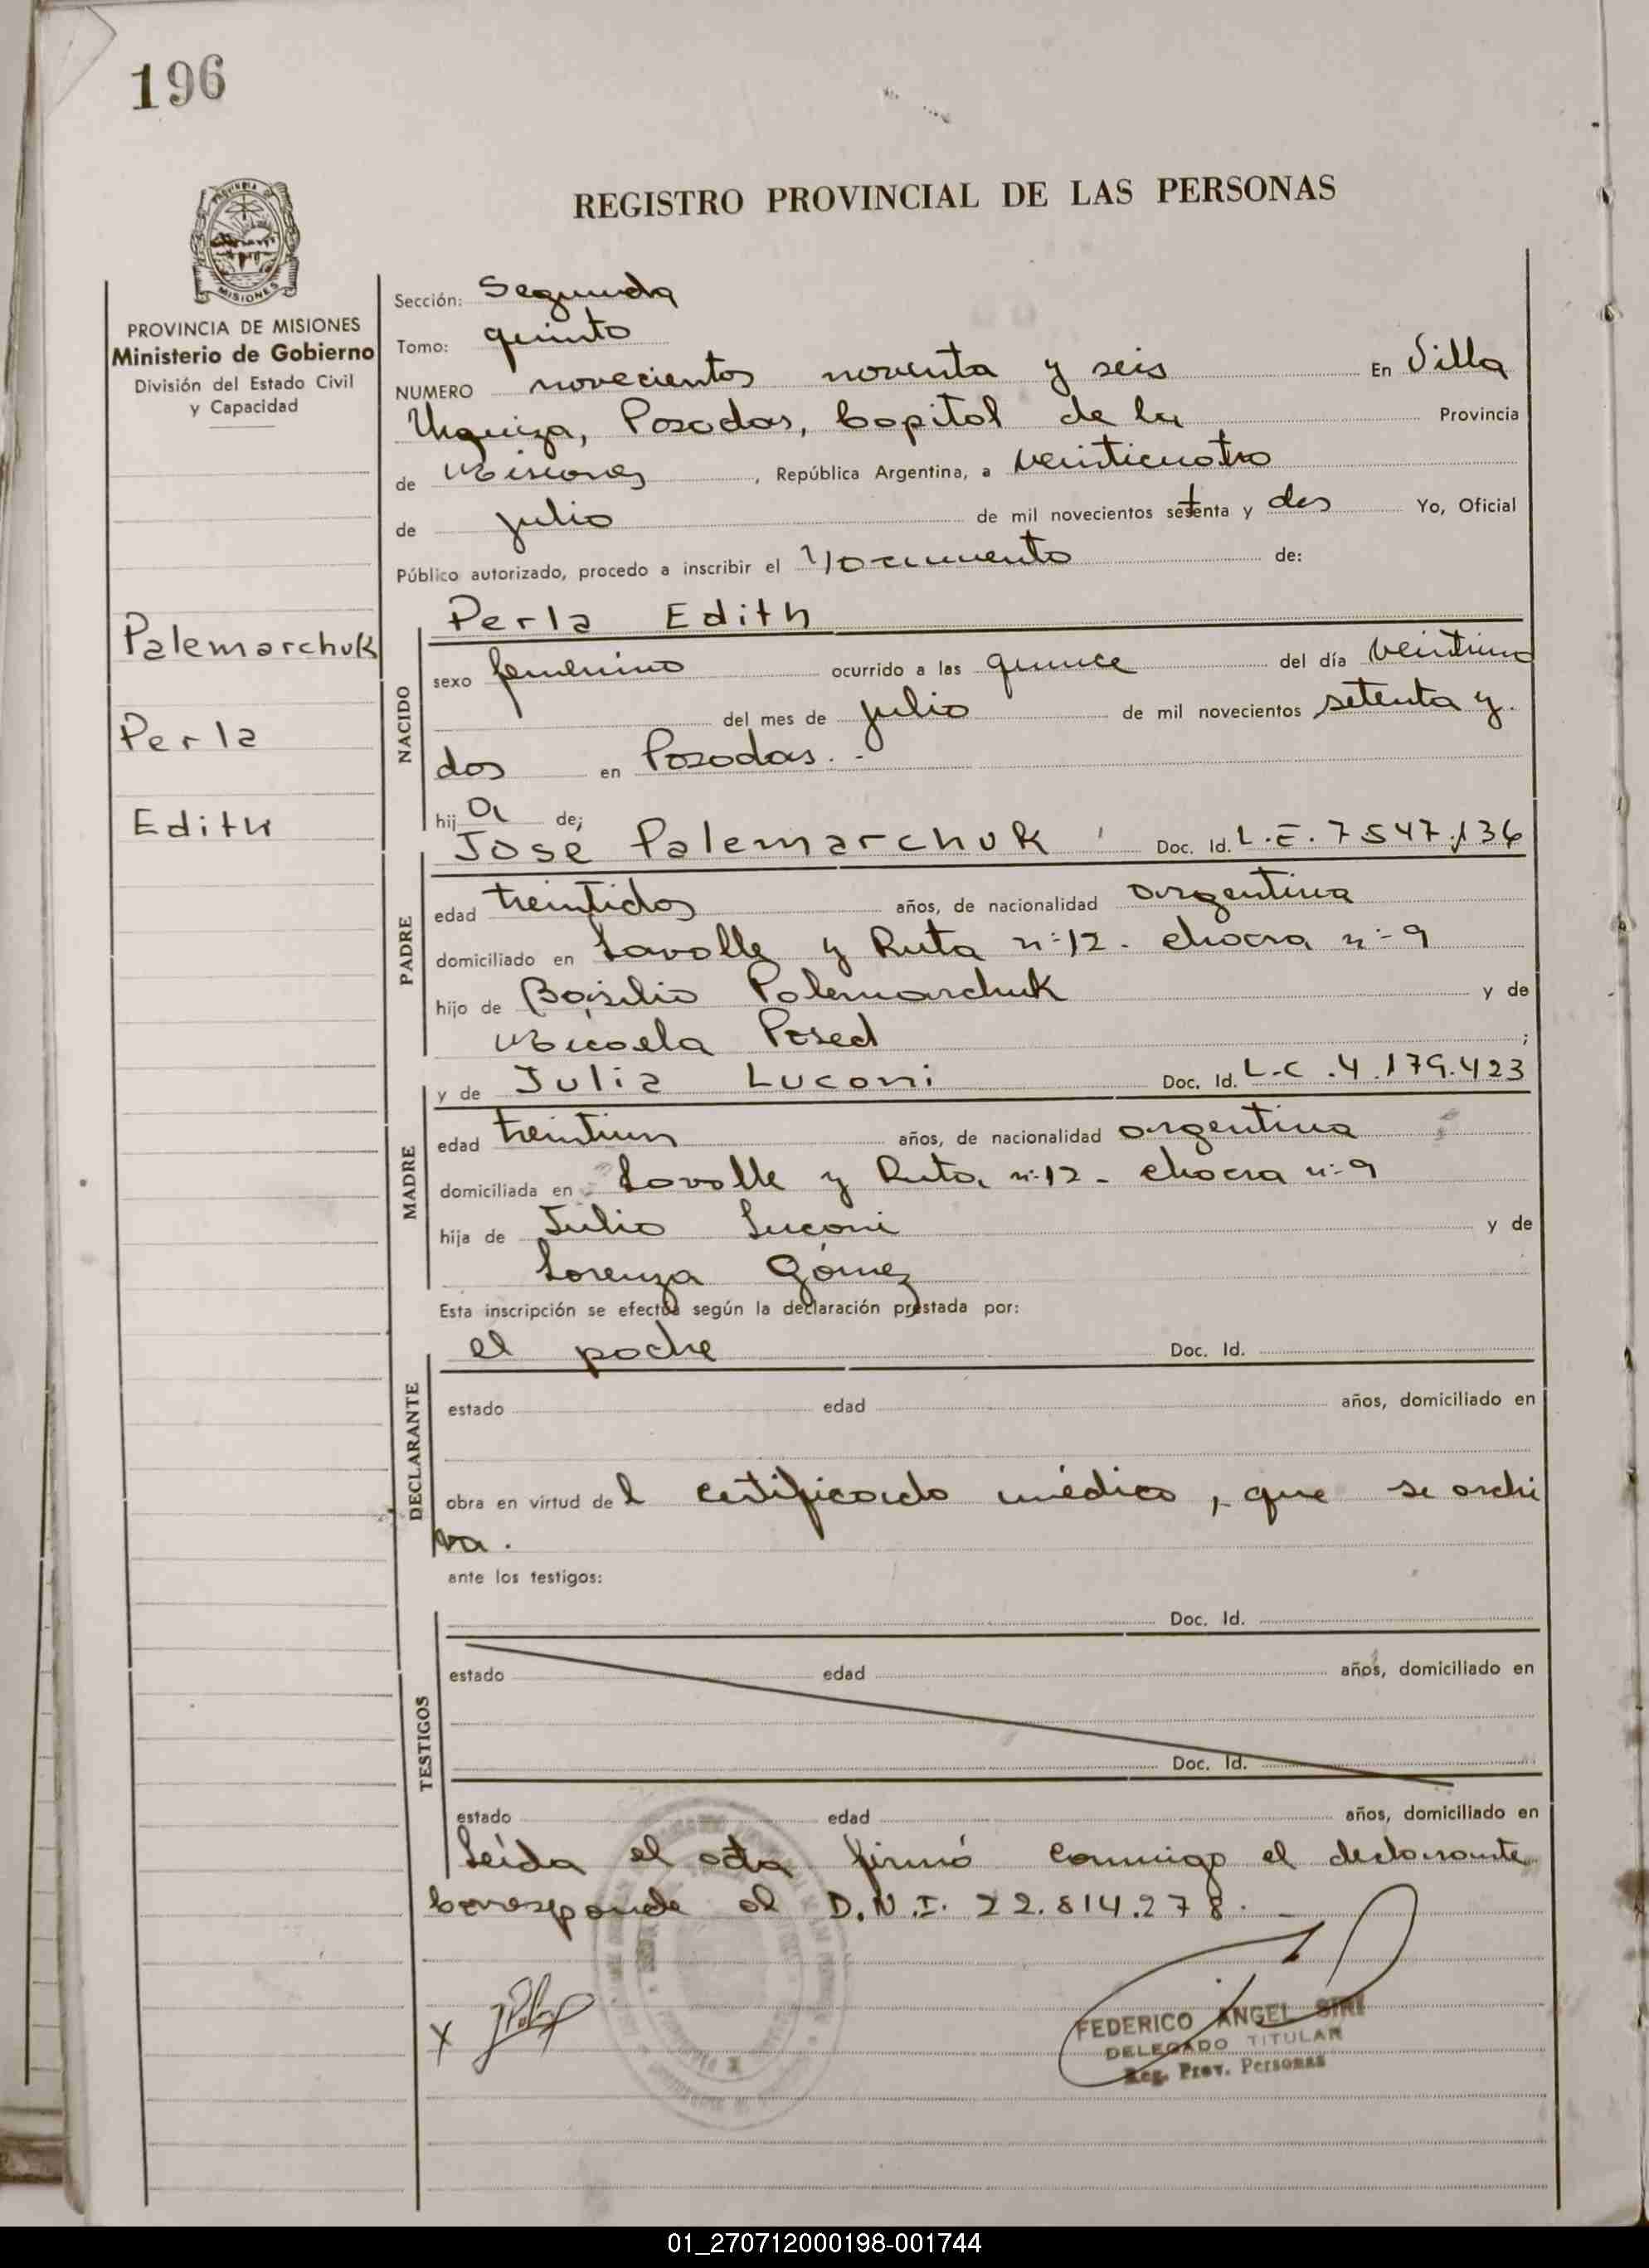 196
REGISTRO PROVINCIAL DE LAS PERSONAS
PROVINCIA DE MISIONES
Ministerio de Gobierno
División del Estado Civil
y Capacidad
Palemarchuk
Perla
Edith
Sección: Segunda
Tomo: quinto
NUMERO novecientos noventa y seis En Villa
Urquiza, Posadas, Capital de la Provincia
de Misiones, República Argentina, a veinticuatro
de julio de mil novecientos setenta y dos Yo, Oficial
Público autorizado, procedo a inscribir el Nacimiento de:
NACIDO
Perla Edith
sexo femenino ocurrido a las quince del día veintiuno
del mes de julio de mil novecientos setenta y
dos en Posadas.-
hija de;
PADRE
Jose Palemarchuk Doc. Id. L.E. 7547.136
edad treintidos años, de nacionalidad argentina
domiciliado en Lavalle y Ruta nº 12 - chacra nº 9
hijo de Basilio Palemarchuk y de
Micaela Posed ;
MADRE
y de Julia Luconi Doc. Id. L.C. 4.179.423
edad treintiun años, de nacionalidad argentina
domiciliada en Lavalle y Ruta nº 12 - chacra nº 9
hija de Julio Luconi y de
Lorenza Gómez
Esta inscripción se efectúa según la declaración prestada por:
DECLARANTE
el padre Doc. Id.
estado edad años, domiciliado en
obra en virtud del certificado médico, que se archi
va.
ante los testigos:
TESTIGOS
Doc. Id.
estado edad años, domiciliado en
Doc. Id.
estado edad años, domiciliado en
Leída el acta firmó conmigo el declarante
Corresponde al D.N.I. 22.814.278.-
X
FEDERICO ANGEL SIRI
DELEGADO TITULAR
Reg. Prov. Personas
01_270712000198-001744